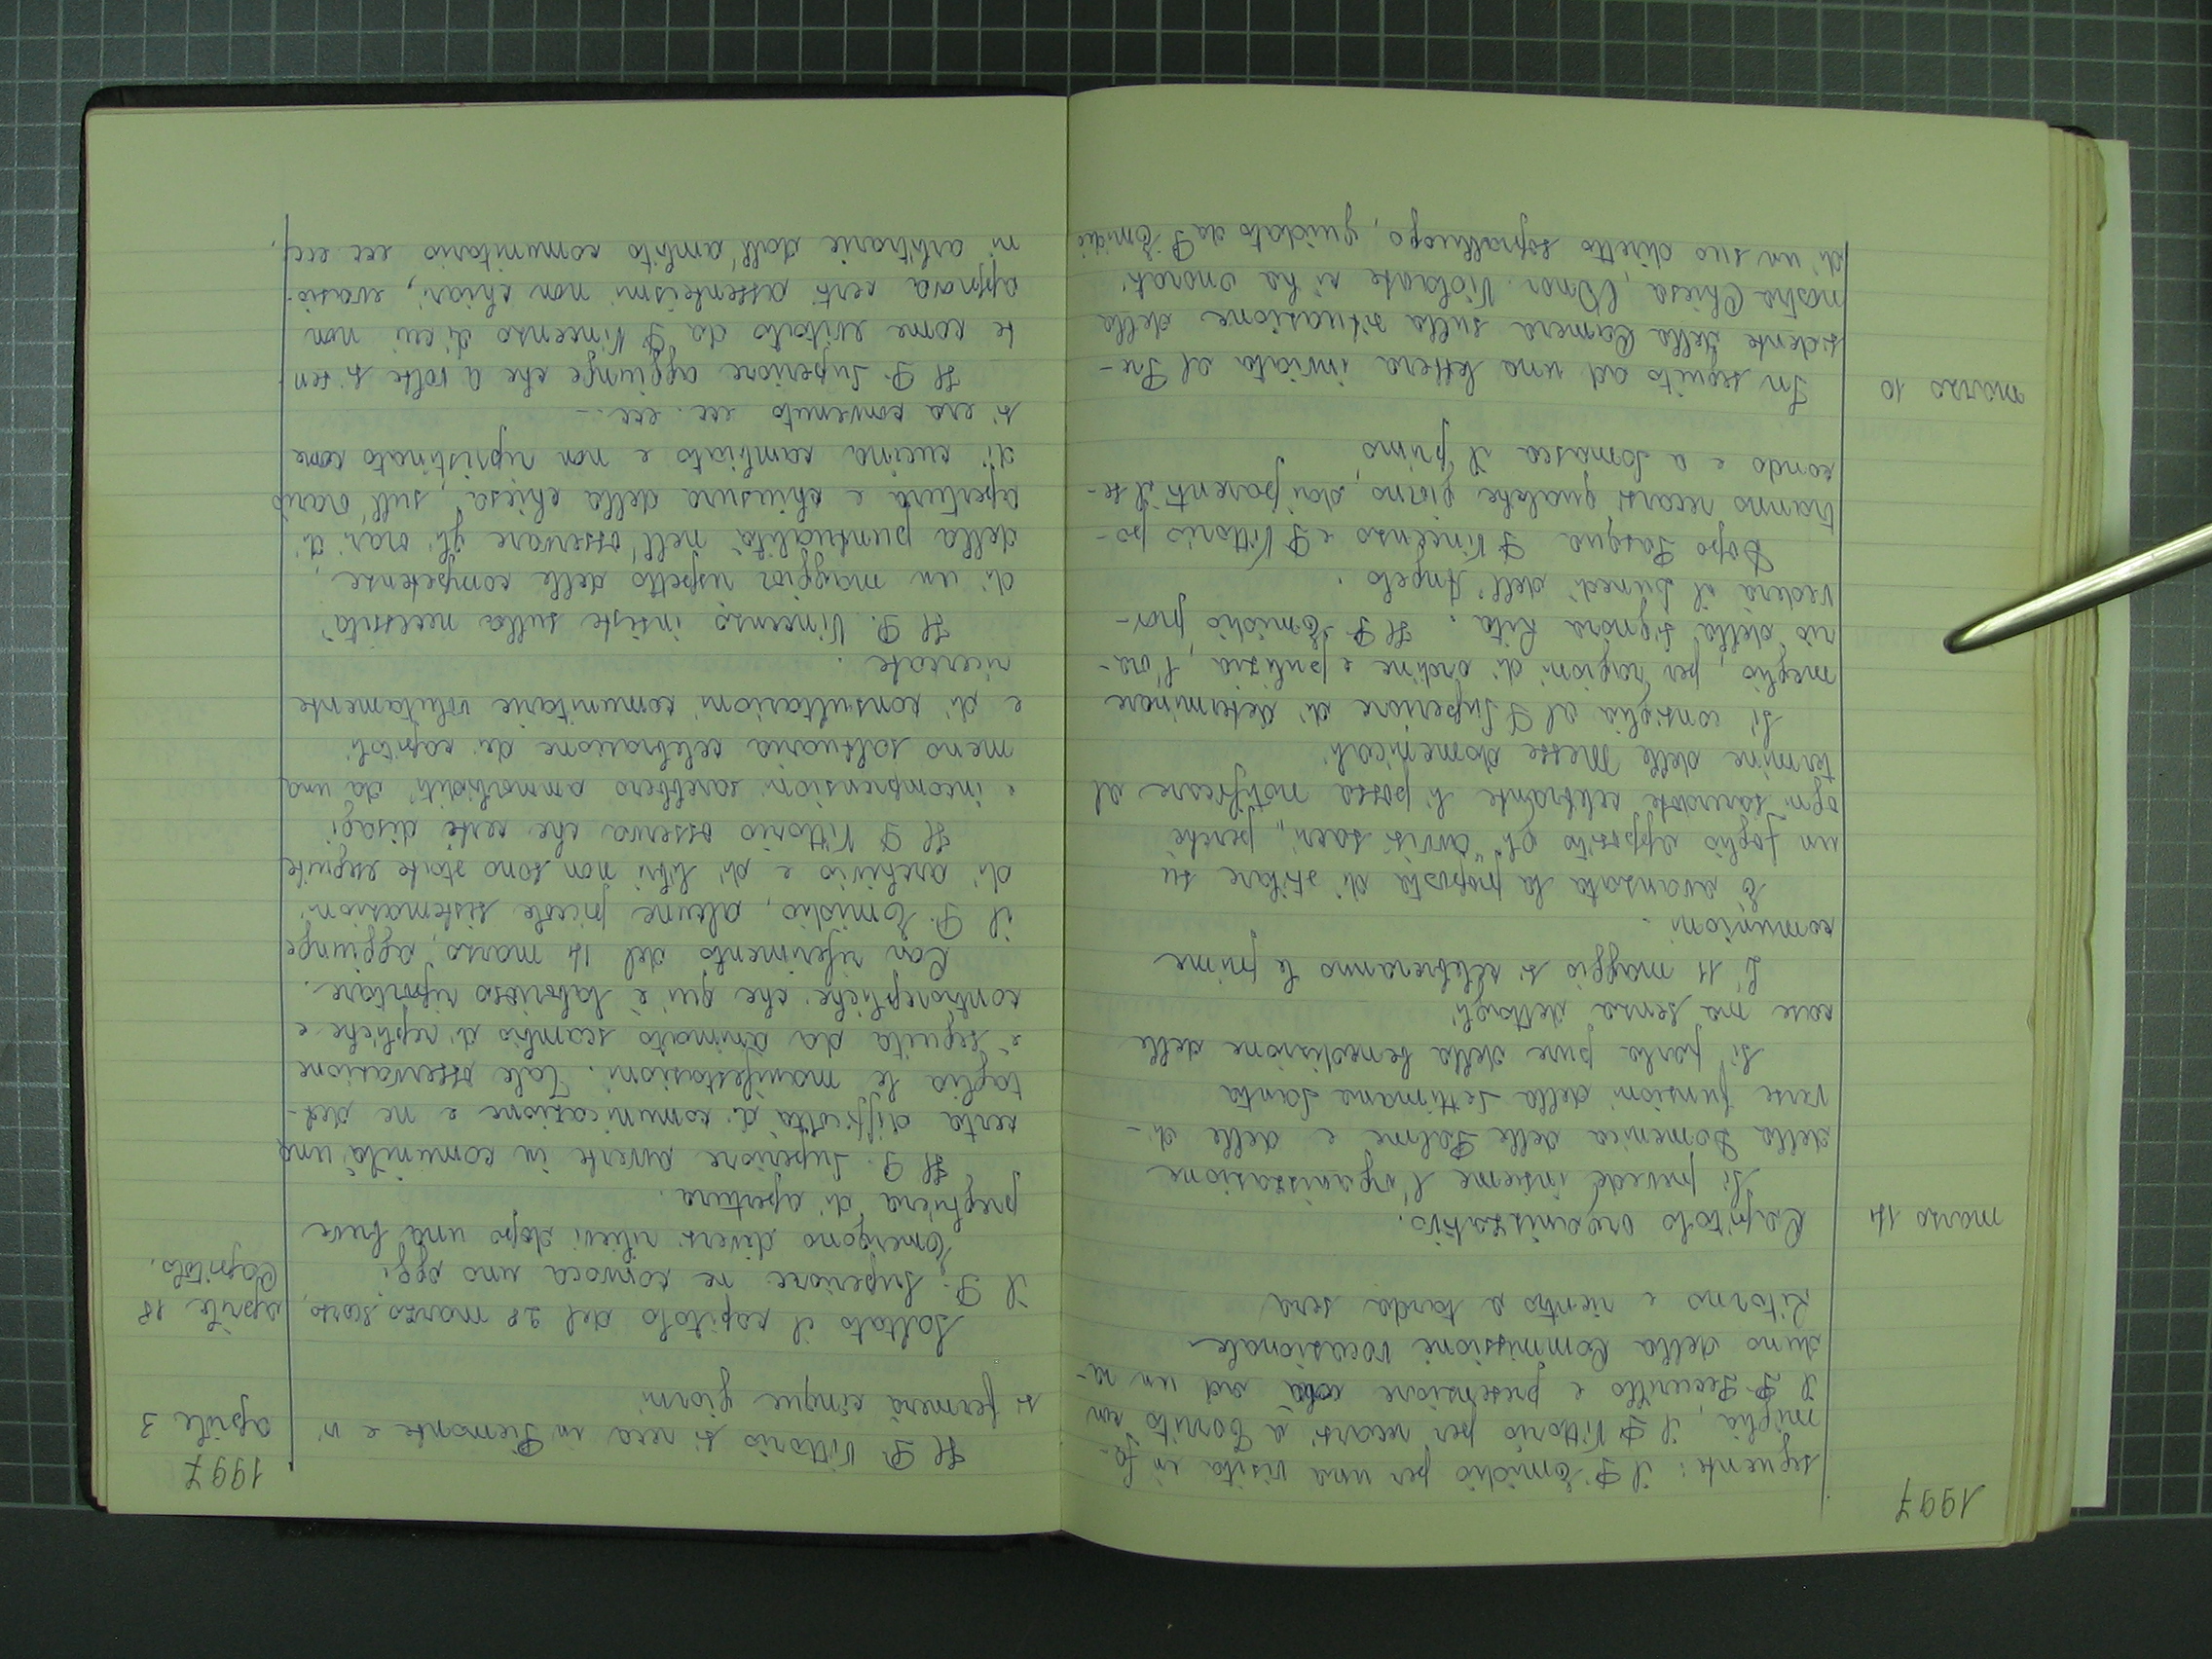 1997
seguente: il P. Emidio per una visita in fa-
miglia, il P Vittorio per recarsi a Torvito con
il P. Securillo e presenziare colà ad un ra-
duno della Commissione vocazionale
Ritorno e rientro a tarda sera
marzo 14
Capitolo organizzativo.
Si prevede insieme l'organizzazione
della Domenica delle Palme e delle di-
verse funzioni della Settimana Santa
Si parla pure della benedizione delle
case ma senza dettagli
L'11 maggio si celebreranno le prime
comunioni.
È avanzata la proposta di stilare su
un foglio apposito gli "avvisi sacri", perché
ogni sacerdote celebrante li possa notificare al
termine delle Messe domenicali.
Si consiglia al P Superiore di determinare
meglio, per ragioni di ordine e pulizia, l'ora-
rio della signora Rita. Il P. Emidio prov-
vederà il Lunedì dell'Angelo.
Dopo Pasqua P Vincenzo e P Vittorio po-
tranno recarsi qualche giorno, dai parenti il se-
condo e a Somasca il primo,
marzo 10
In seguito ad una lettera inviata al Pre-
sidente della Camera sulla situazione della
nostra Chiesa, l'Onor. Violante ci ha onorati
di un suo diretto sopralluogo, guidato da P. Emidio
1997
aprile 3
Il P. Vittorio si reca in Piemonte e vi
si fermerà cinque giorni
aprile 18
Capitolo.
Saltato il capitolo del 28 marzo scorso,
il P. Superiore ne convoca uno oggi
Emergono diversi rilievi dopo una breve
preghiera di apertura.
Il P. Superiore avverte in comunità una
certa difficoltà di comunicazione e ne det-
taglia le manifestazioni. Tale osservazione
è seguita da animato scambio di repliche e
controrepliche che qui è laborioso riportare.
Con riferimento del 14 marzo, aggiunge
il P. Emidio, alcune piccole sistemazioni
di archivio e di libri non sono state eseguite
Il P Vittorio osserva che certi disagi
e incomprensioni sarebbero ammorbiditi da una
meno saltuaria celebrazione dei capitoli
e di consultazioni comunitarie volutamente
ricercate.
Il P. Vincenzo insiste sulla necessità
di un maggior rispetto delle competenze,
della puntualità nell'osservare gli orari di
apertura e chiusura della chiesa, sull'orario
di cucina cambiato e non ripristinato come
si era convenuto ecc. ecc. -
Il P. Superiore aggiunge che a volte si sen-
te come evitato da P Vincenzo di cui non
approva certi assenteismi non chiari, evasio-
ni arbitrarie dall'ambito comunitario ecc ecc,